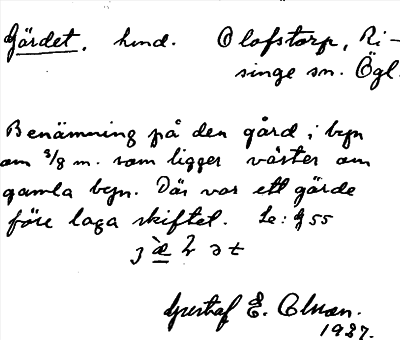 Gärdet, hmd. Olofstorp, Ri-
singe sn. Ögl.
Benämning på den gård i byn
om 3/8 m. som ligger väster om
gamla byn. Där var ett gärde
före laga skiftet. Le: g 55
Gustaf E. Olsson.
1937.